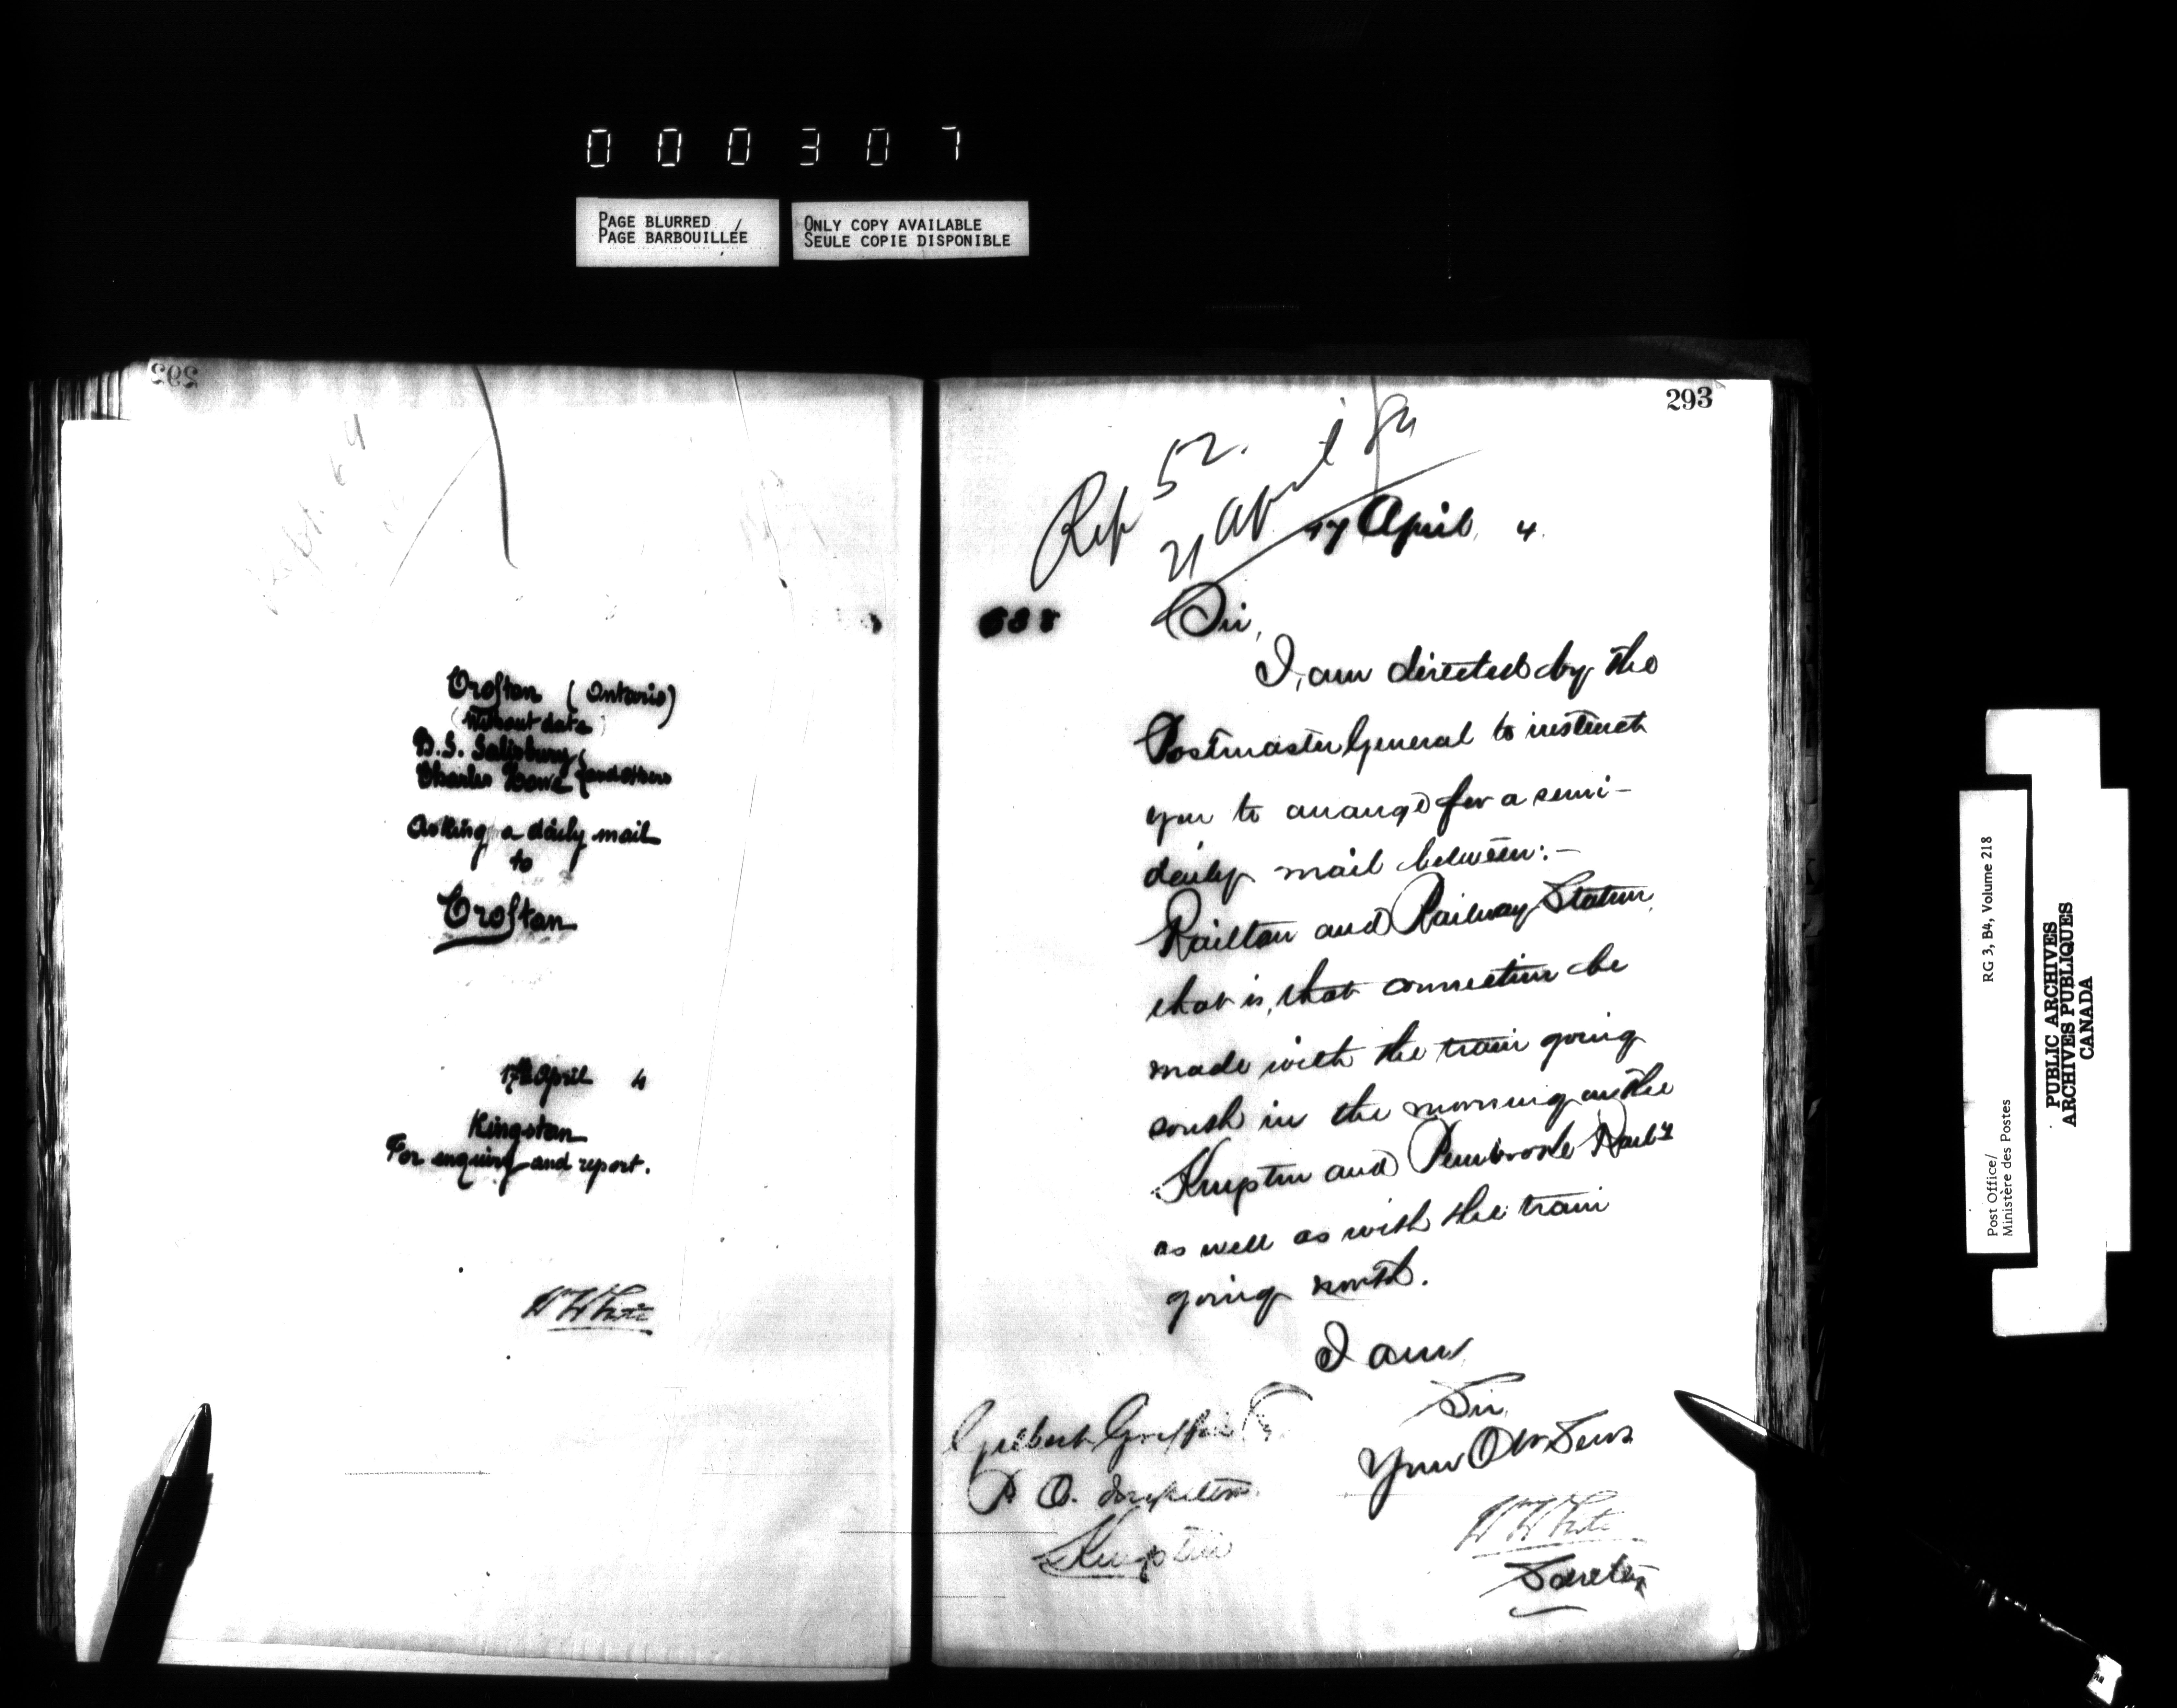 000307
PAGE BLURRED
PAGE BARBOUILLÉE
ONLY COPY AVAILABLE
SEULE COPIE DISPONIBLE
292
Crofton (Ontario)
(Without date)
D.S. Salisbury
Charles and others
Asking a daily mail
to
Crofton
17th April 4
Kingston
For enquiry and report.
W White
293
Rep 52.
21 April 84
17 April, 4.
688
Sir,
I, am directed by the
Postmaster General to instruct
you to arrange for a semi-
daily mail between:-
Railton and Railway Station
that is, that connection be
made with the train going
south in the morning on the
Kingston and Pembroke Railwy
as well as with the train
going north.
I am
Sir,
Your Obt. Servt
W White
Secretary
Gilbert Griffin
P. O. Inspector.
Kingston
Post Office/
Ministère des Postes
RG 3, B4, Volume 218
PUBLIC ARCHIVES
ARCHIVES PUBLIQUES
CANADA